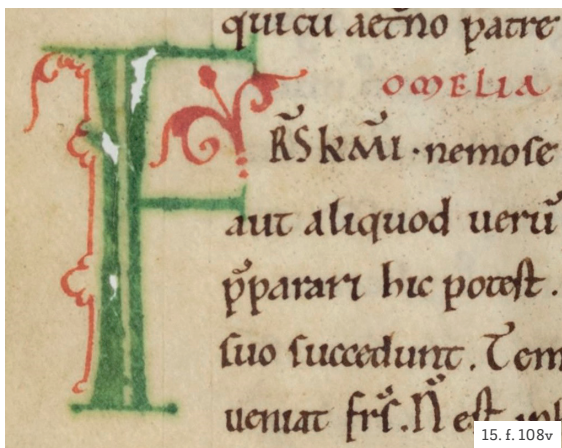 qui cū aet̄no patre
OMELIA
FR̄S KM̄I · nemo se
aut aliquod uerū
p̄parari hic potest .
suo succedunt . Tem
ueniat frs̄ . N̄ est
15. f. 108v